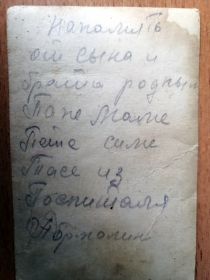 На память
от сына и
брата родным
Папе Маме
Пете Симе
Тасе из
Госпиталя